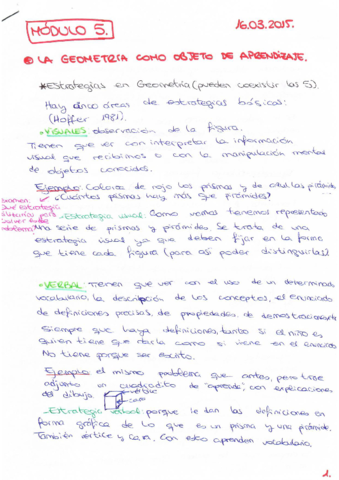 MÓDULO 5.
16.03.2015.
LA GEOMETRÍA COMO OBJETO DE APRENDIZAJE.
*Estrategias en Geometría (pueden coexistir las 5).
Hay cinco áreas de estrategias básicas:
(Hoffer 1981).
VISUALES observación de la figura.
Tienen que ver con interpretar la información
visual que recibimos o con la manipulación mental
de objetos conocidos.
Ejemplo: Colorea de rojo los prismas y de azul las pirámides
¿Cuántos prismas hay más que pirámides?
Examen:
¿Qué estrategia
para
- Estrategia visual: Como vemos tenemos representado
una serie de prismas y pirámides. Se trata de una
estrategia visual ya que deben fijar en la forma
que tiene cada figura (para así poder distinguirlas)
VERBAL Tienen que ver con el uso de un determinado
vocabulario, la descripción de los conceptos, el enunciado
de definiciones precisas, de propiedades, de demostraciones
Siempre que haya definiciones, tanto si el niño es
quien tiene que darla como si viene en el enunciado
No tiene porque ser escrito.
Ejemplo el mismo problema que antes, pero trae
adjunto un cuadradito de "aprende", con explicaciones
del dibujo.
vértice
cara
- Estrategia verbal porque le dan las definiciones en
forma gráfica de lo que es un prisma y una pirámide.
También vértice y cara. Con esto aprenden vocabulario.
1.